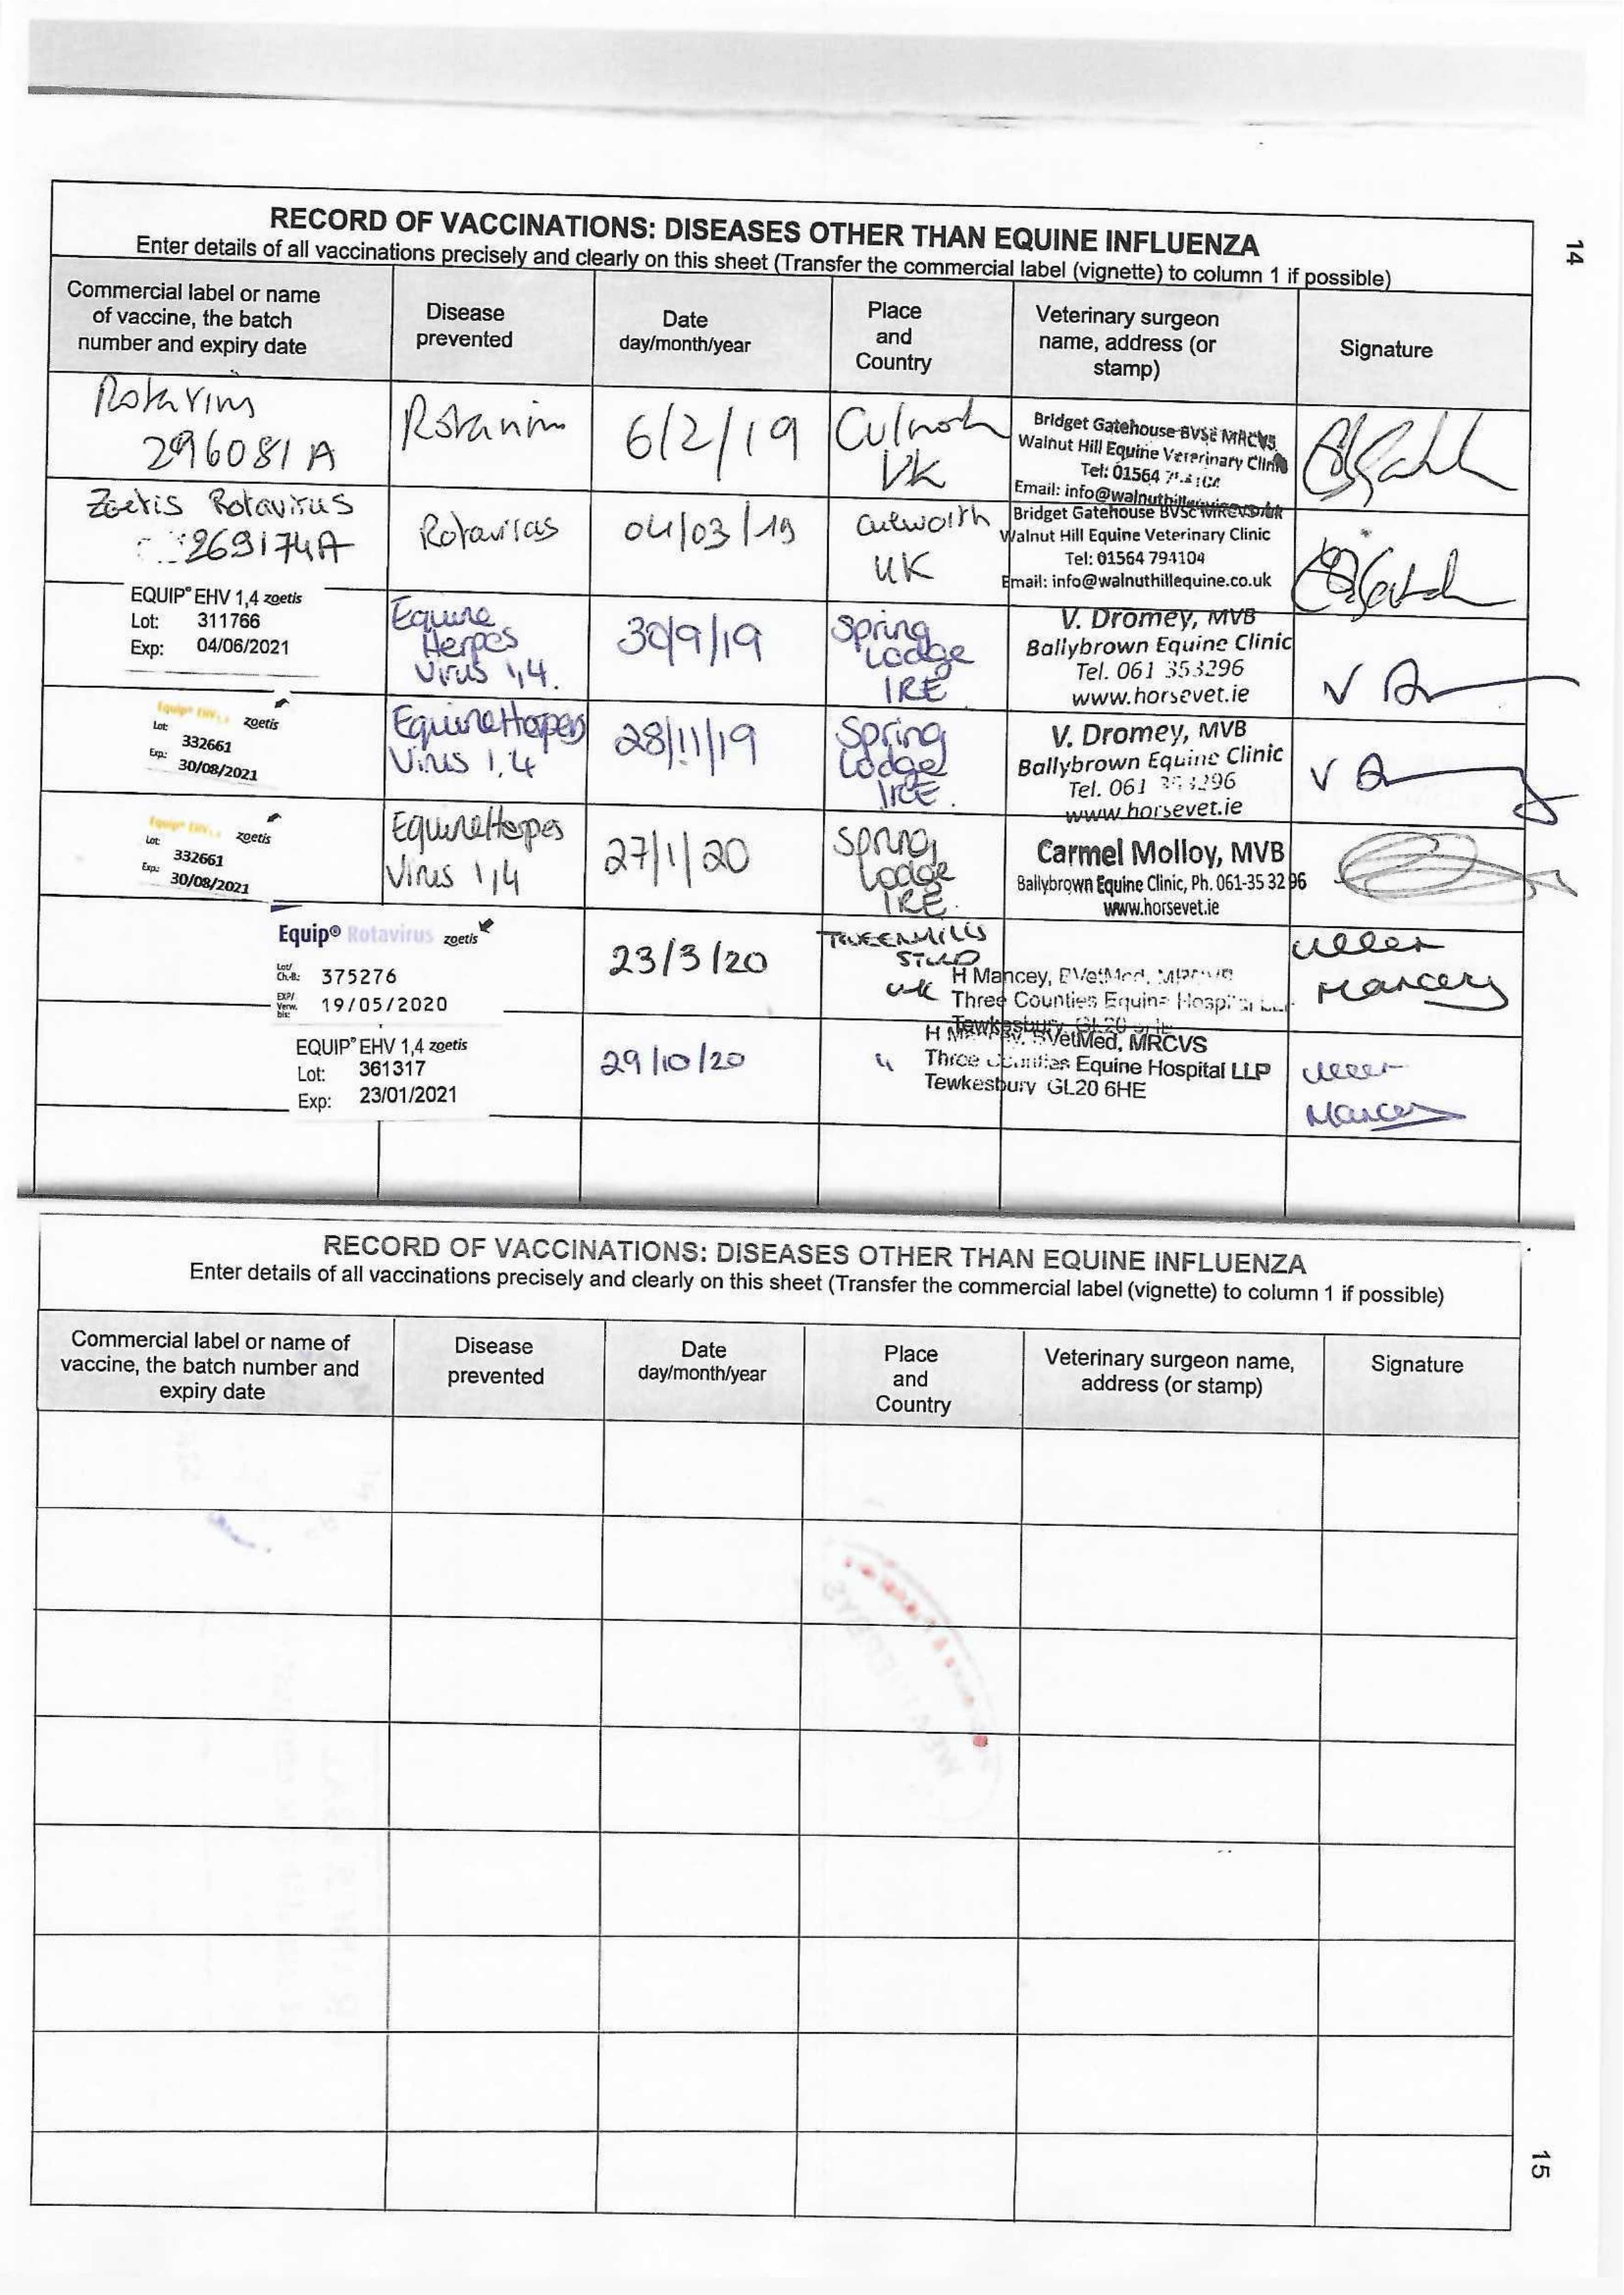 14
RECORD OF VACCINATIONS: DISEASES OTHER THAN EQUINE INFLUENZA
Enter details of all vaccinations precisely and clearly on this sheet (Transfer the commercial label (vignette) to column 1 if possible)
Commercial label or name
of vaccine, the batch
number and expiry date
Disease
prevented
Date
day/month/year
Place
and
Country
Veterinary surgeon
name, address (or
stamp)
Signature
Rotavirus
296081A
Rotavirus
6/2/19
Culworth
UK
Bridget Gatehouse BVSc MRCVS
Walnut Hill Equine Veterinary Clinic
Tel: 01564
Email: info@walnuthillequine.co.uk
Zoetis Rotavirus
269174A
Rotavirus
04/03/19
Culworth
UK
Bridget Gatehouse BVSc MRCVS
Walnut Hill Equine Veterinary Clinic
Tel: 01564 794104
Email: info@walnuthillequine.co.uk
EQUIP® EHV 1,4 zoetis
Lot: 311766
Exp: 04/06/2021
Equine
Herpes
Virus 1,4.
30/9/19
Spring
Lodge
IRE
V. Dromey, MVB
Ballybrown Equine Clinic
Tel. 061 353296
www.horsevet.ie
Equip® EHV 1,4 zoetis
Lot: 332661
Exp: 30/08/2021
Equine Herpes
Virus 1,4
28/11/19
Spring
Lodge
IRE.
V. Dromey, MVB
Ballybrown Equine Clinic
Tel. 061 353296
www.horsevet.ie
Equip® EHV 1,4 zoetis
Lot: 332661
Exp: 30/08/2021
Equine Herpes
Virus 1,4
27/1/20
Spring
Lodge
IRE.
Carmel Molloy, MVB
Ballybrown Equine Clinic, Ph. 061-35 32 96
www.horsevet.ie
Equip® Rotavirus zoetis
Lot/
Ch.-B.: 375276
EXP/
Verw.
bis: 19/05/2020
23/3/20
TWEENHILLS
STUD
UK
H Mancey, BVetMed, MRCVS
Three Counties Equine Hospital LLP
Tewkesbury GL20 6HE
Mancey
EQUIP® EHV 1,4 zoetis
Lot: 361317
Exp: 23/01/2021
29/10/20
"
H Mancey, BVetMed, MRCVS
Three Counties Equine Hospital LLP
Tewkesbury GL20 6HE
Mancey
RECORD OF VACCINATIONS: DISEASES OTHER THAN EQUINE INFLUENZA
Enter details of all vaccinations precisely and clearly on this sheet (Transfer the commercial label (vignette) to column 1 if possible)
Commercial label or name of
vaccine, the batch number and
expiry date
Disease
prevented
Date
day/month/year
Place
and
Country
Veterinary surgeon name,
address (or stamp)
Signature
15